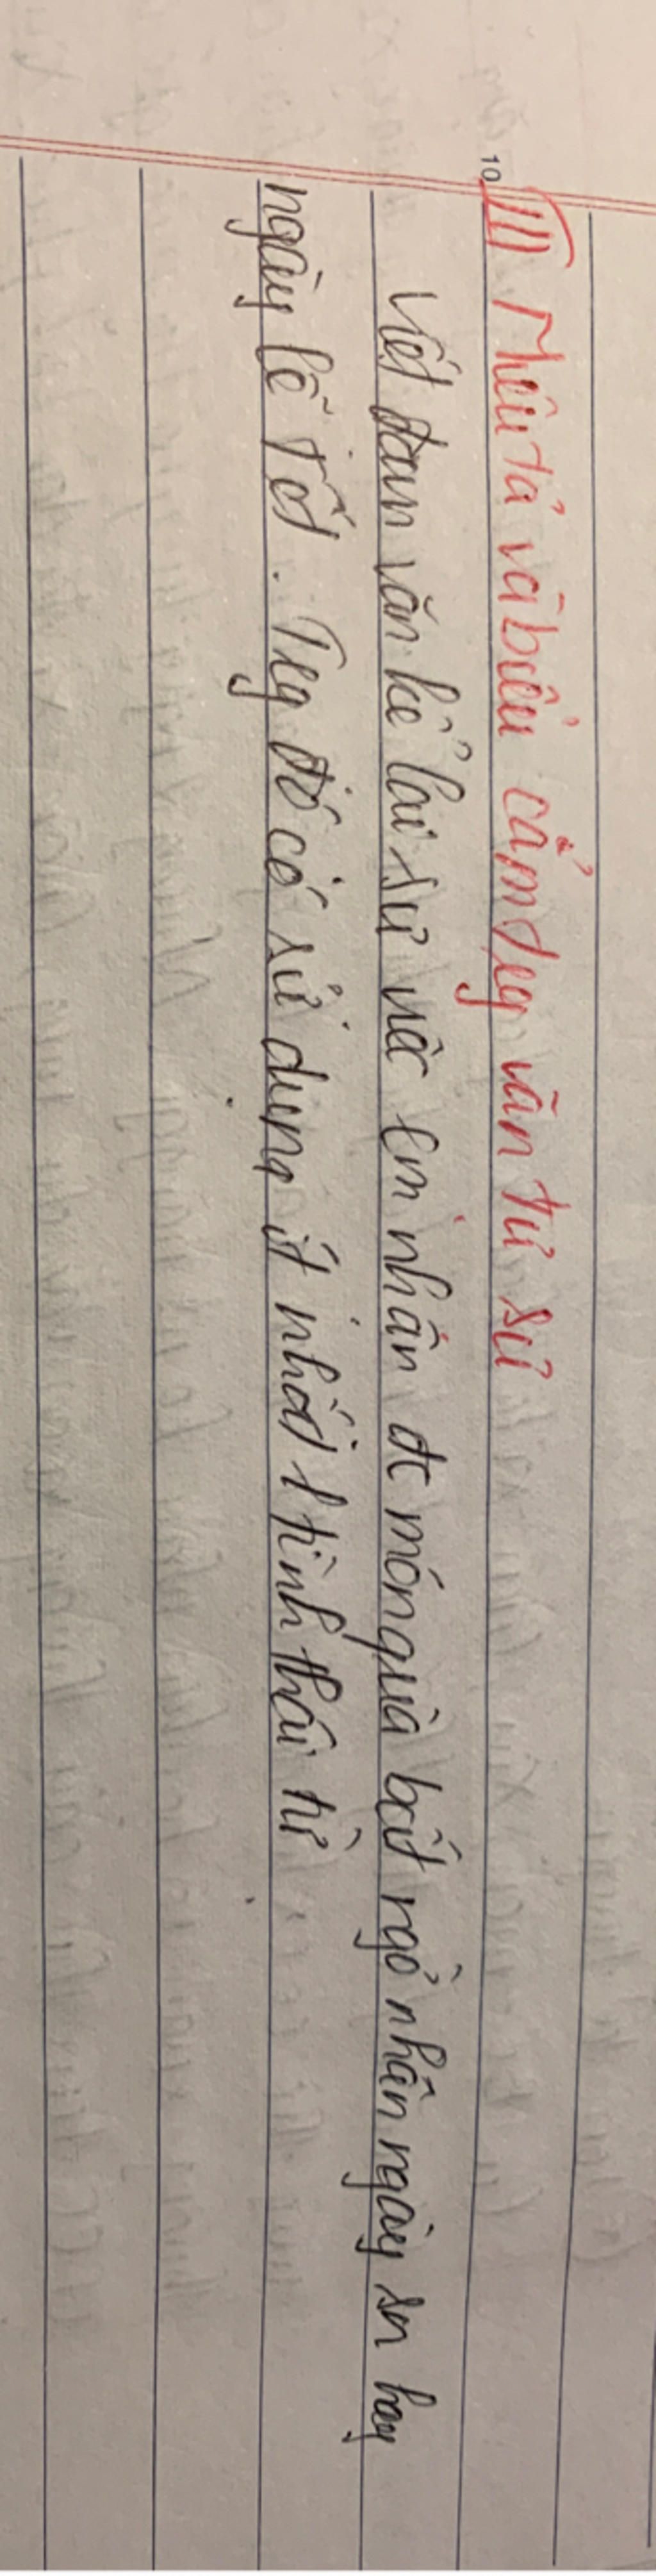 10
III) Miêu tả và biểu cảm trg văn tự sự
Viết đoạn văn kể lại sự việc em nhận đc món quà bất ngờ nhân ngày sn hay
ngày lễ tết. Trg đó có sử dụng ít nhất 1 tình thái từ